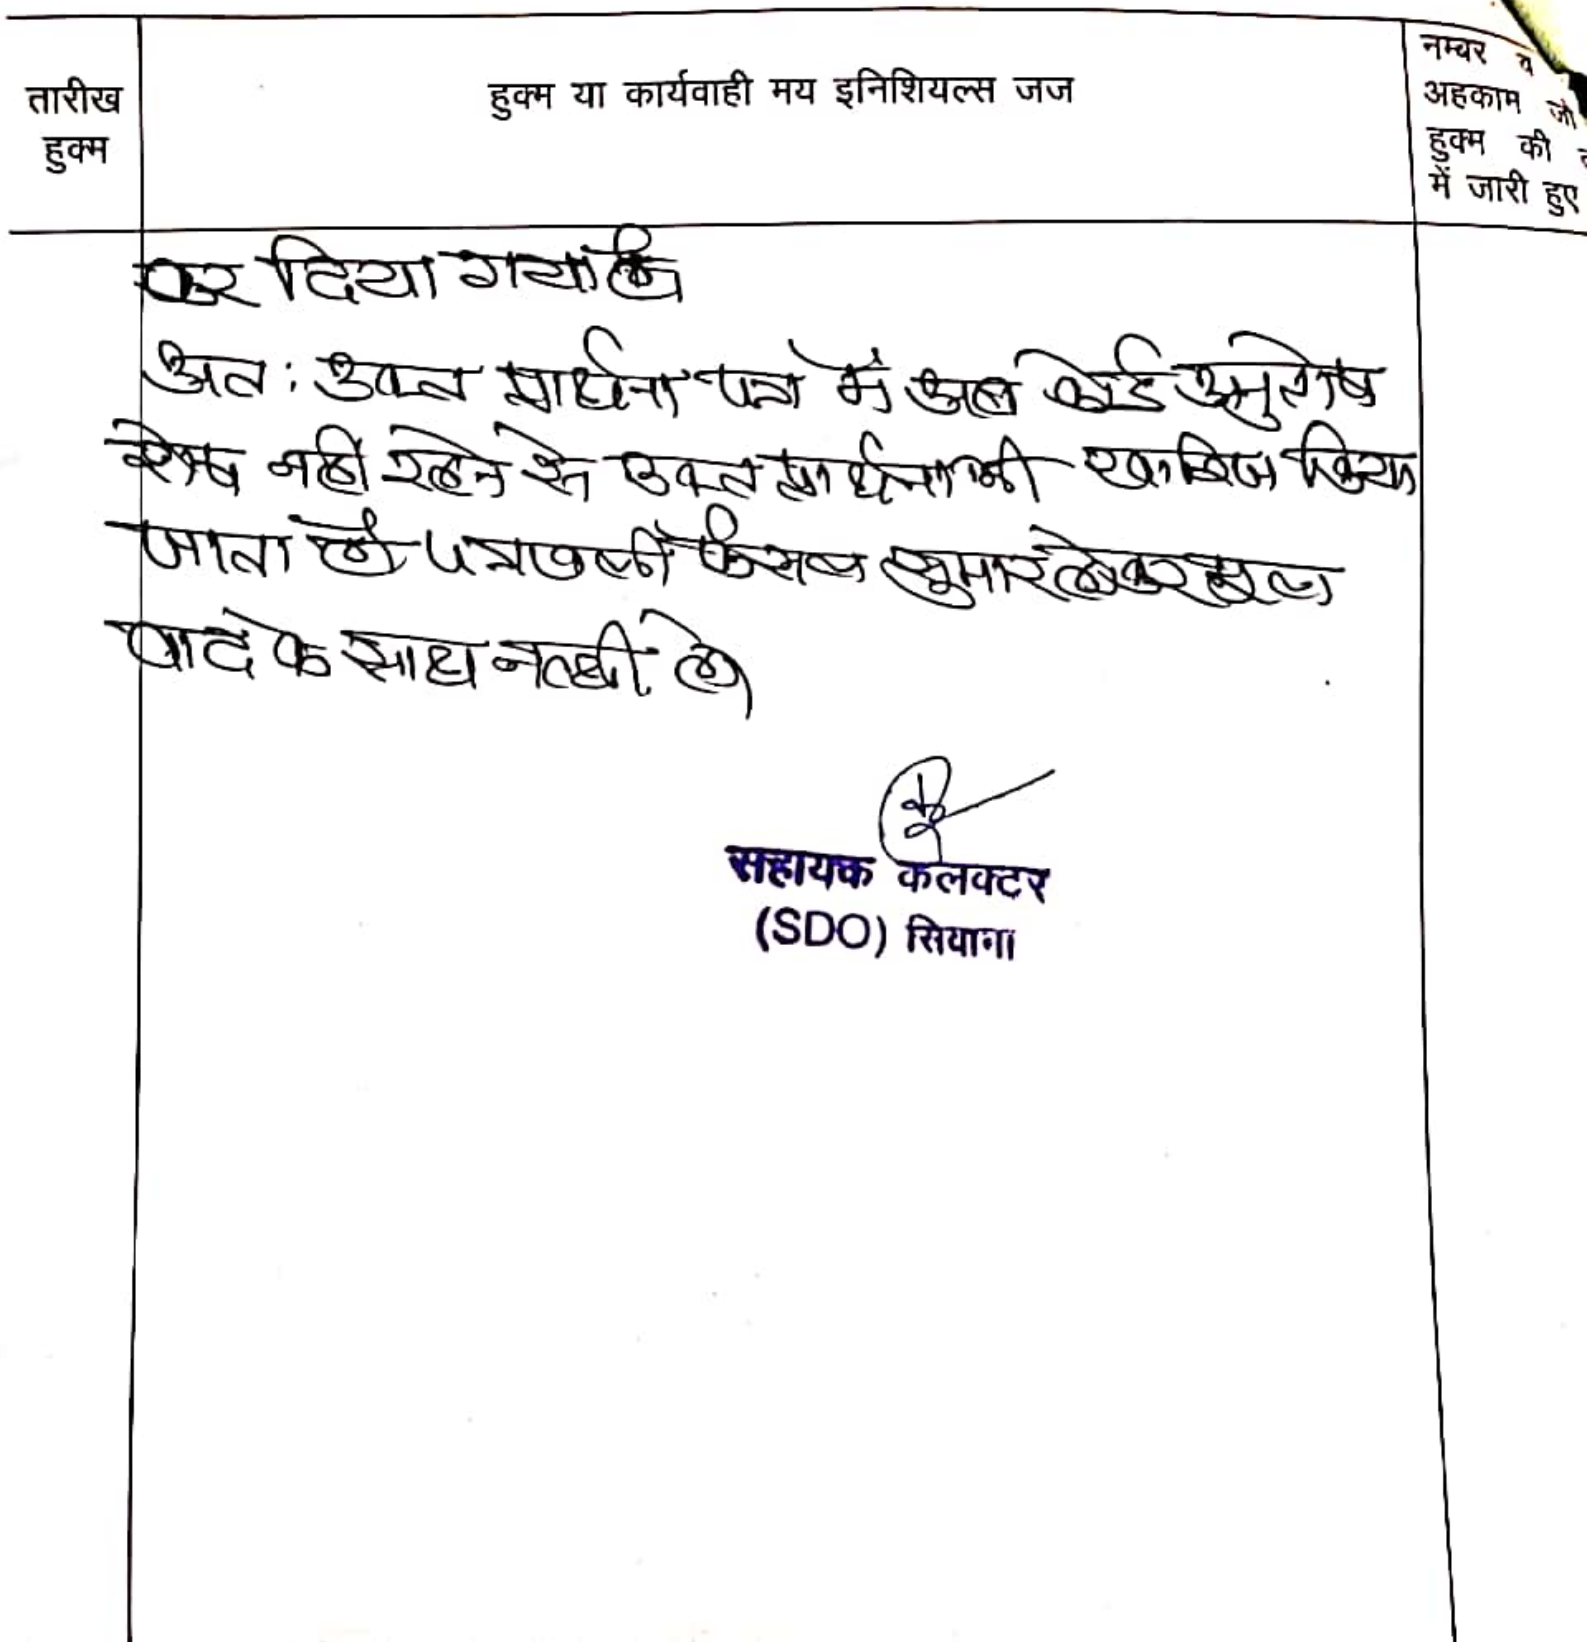 तारीख
हुक्म
हुक्म या कार्यवाही मय इनिशियल्स जज
नम्बर व
अहकाम जो
हुक्म की
में जारी हुए
कर दिया गया है
अतः उक्त प्रार्थना पत्र में अब कोई अनुतोष
शेष नहीं रहने से उक्त प्रार्थना खारिज किया
जाता है पत्रावली फैसल शुमार होकर मूल
वाद के साथ नत्थी हो
सहायक कलक्टर
(SDO) सियाना